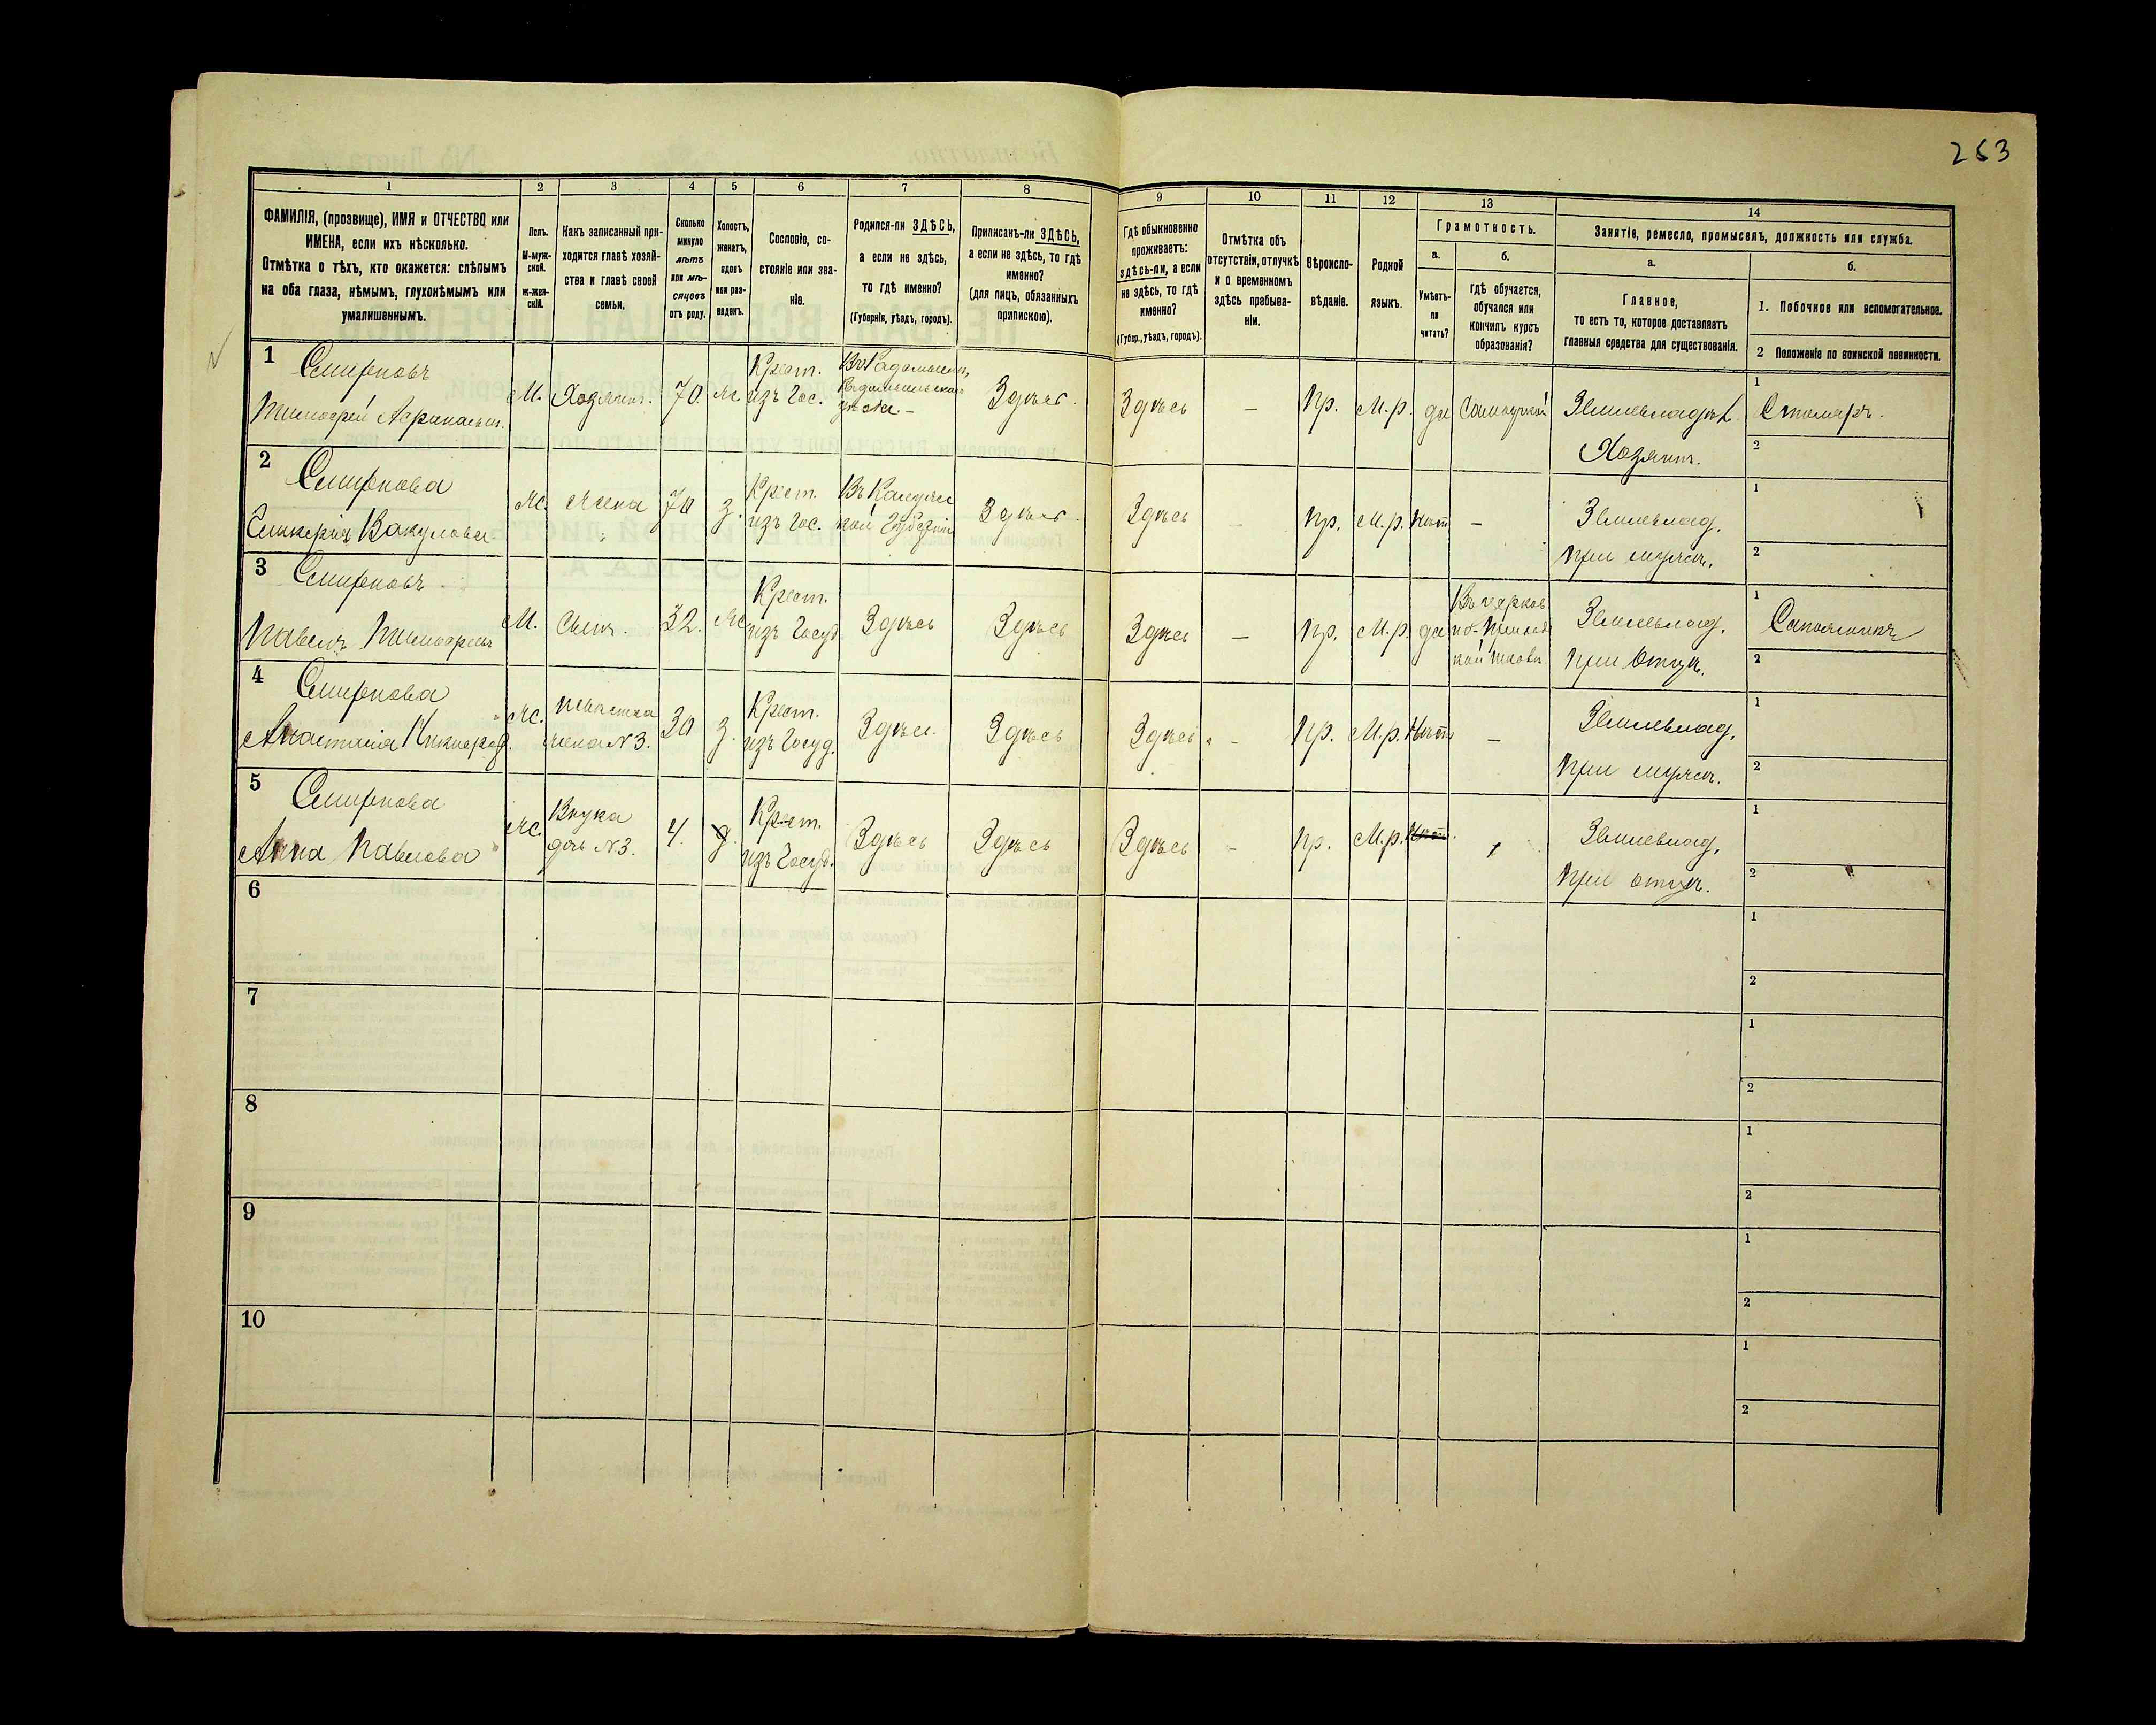 263
1
2
3
4
5
6
7
8
9
10
11
12
13
14
ФАМИЛІЯ, (прозвище), ИМЯ и ОТЧЕСТВО или
ИМЕНА, если ихъ нѣсколько.
Отмѣтка о тѣхъ, кто окажется: слѣпымъ
на оба глаза, нѣмымъ, глухонѣмымъ или
умалишеннымъ.
Полъ.
М-муж-
ской.
ж-жен-
скій.
Какъ записанный при-
ходится главѣ хозяй-
ства и главѣ своей
семьи.
Сколько
минуло
лѣтъ
или мѣ-
сяцевъ
отъ роду.
Холостъ,
женатъ,
вдовъ
или раз-
веденъ.
Сословіе, со-
стояніе или зва-
ніе.
Родился-ли ЗДѢСЬ,
а если не здѣсь,
то гдѣ именно?
(Губернія, уѣздъ, городъ).
Приписанъ-ли ЗДѢСЬ,
а если не здѣсь, то гдѣ
именно?
(для лицъ, обязанныхъ
припискою).
Гдѣ обыкновенно
проживаетъ:
здѣсь-ли, а если
не здѣсь, то гдѣ
именно?
(Губер., уѣздъ, городъ).
Отмѣтка объ
отсутствіи, отлучкѣ
и о временномъ
здѣсь пребыва-
ніи.
Вѣроиспо-
вѣданіе.
Родной
языкъ.
Грамотность.
а.
Умѣетъ-
ли
читать?
б.
гдѣ обучается,
обучался или
кончилъ курсъ
образованія?
Занятіе, ремесло, промыселъ, должность или служба.
а.
Главное,
то есть то, которое доставляетъ
главныя средства для существованія.
б.
1. Побочное или вспомогательное.
2 Положеніе по воинской повинности.
1
Смирновъ
Тимофей
М. Хозяинъ. 70 ж.
Крест.
изъ Гос.
Здѣсь.
Здѣсь
—
Пр. М.р. да
Хозяинъ.
1
Столяръ.
2
2
Смирнова
Вакулова
Ж. Жена 70 з.
Крест.
изъ Гос.
Здѣсь.
Здѣсь
—
Пр. М.р. нѣт —
Землевлад.
при мужѣ.
1
2
3
Смирновъ
Павелъ
М. Сынъ. 32. ж
Крест.
изъ Госуд
Здѣсь
Здѣсь
Здѣсь
—
Пр. М.р. да
Землевлад.
при Отцѣ.
1
Сапожникъ
2
4
Смирнова
Анастасія
Ж.
невѣстка
жена №3.
30 з.
Крест.
изъ Госуд.
Здѣсь
Здѣсь
Здѣсь
—
Пр. М.р. Нѣт —
Землевлад.
при мужѣ.
1
2
5
Смирнова
Анна Павлова
Ж.
Внука
дочь №3.
4. д.
Крест.
изъ Госуд.
Здѣсь
Здѣсь
Здѣсь
—
Пр. М.р.
Землевлад.
при отцѣ.
1
2
6
1
2
7
1
2
8
1
2
9
1
2
10
1
2